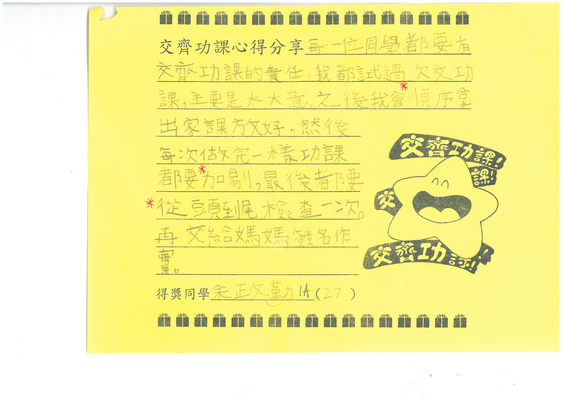 交齊功課心得分享每一位同學都要有
交齊功課的責任,我都試過欠交功
課,主要是太大意,之後我會順序拿
出家課放好。然後
每次做完一樣功課
都要加剔,最後都要
從頭到尾檢查一次。
再交給媽媽簽名作
實。
交齊功課!
課!
交
交齊功課!
得獎同學 余正文勤 1A (27)